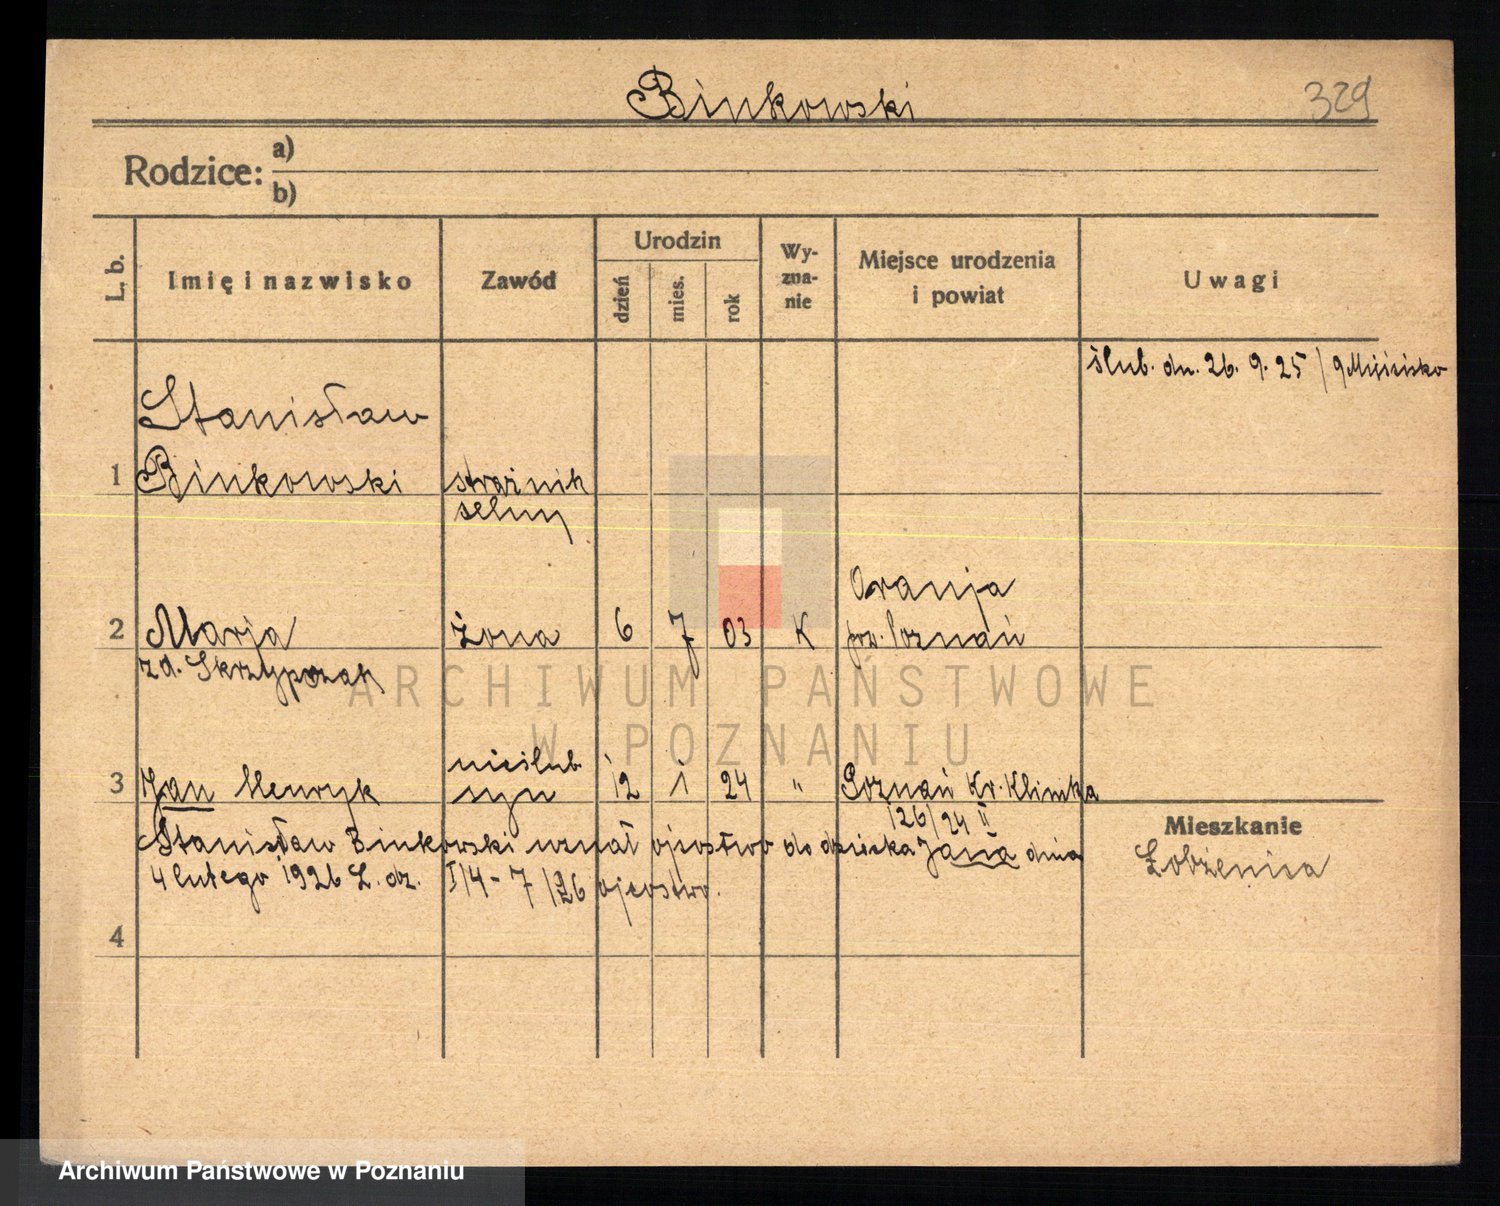 Binkowski 329
Rodzice: a)
b)
L. b. Imię i nazwisko Zawód Urodzin dzień mies. rok Wy-zna-nie Miejsce urodzenia i powiat Uwagi
ślub. dn. 26. 9. 25
Stanisław
1 Binkowski strażnik
celny
Oranja
2 Marja żona 6 7 03 K pow. Poznań
zd. Skrzypczak
ARCHIWUM PAŃSTWOWE
W POZNANIU
nieślub.
3 Jan Henryk syn 12 1 24 " Poznań Kr. Klinika
126/24 II
Mieszkanie
Stanisław Binkowski uznał ojcostwo do dziecka Jana dnia
Łobżenica
4 lutego 1926 L. dz. I/4 - 7/26 ojcostwo.
4
Archiwum Państwowe w Poznaniu